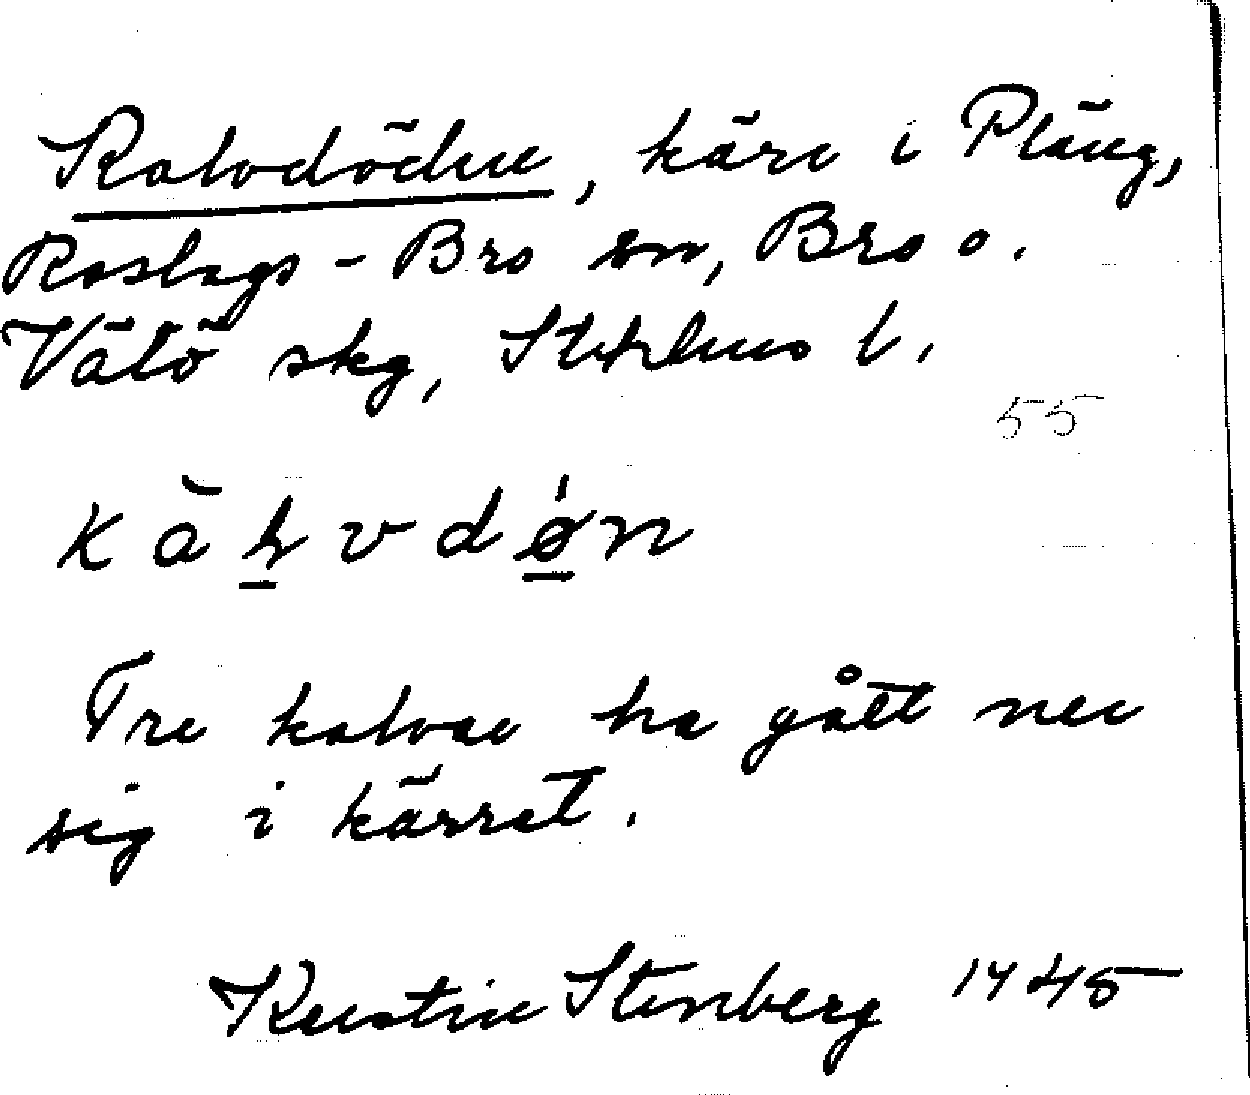 Kalvdöden, kärr i Pläng,
Roslags-Bro sn, Bro o.
Vätö skg, Sthlms l.
55
kăḷvdǿ̣n
Tre kalvar ha gått ner
sig i kärret.
Kerstin Stenberg 1945